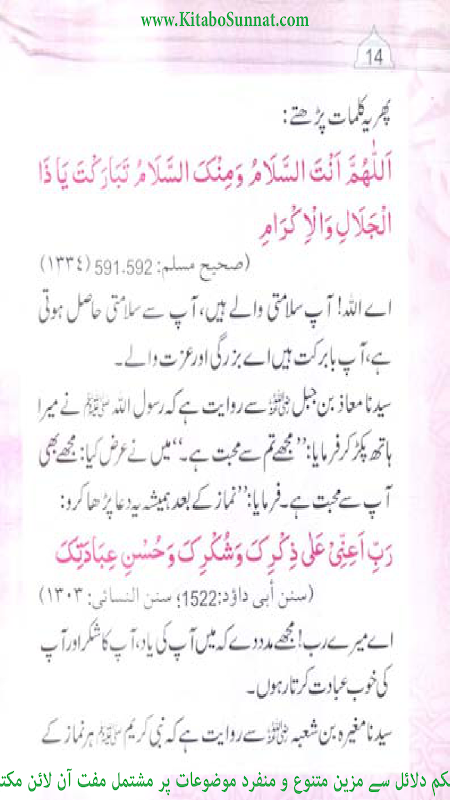 www.KitaboSunnat.com
14
پھر یہ کلمات پڑھتے:
اَللّٰهُمَّ اَنْتَ السَّلَامُ وَمِنْكَ السَّلَامُ تَبَارَكْتَ يَا ذَا
الْجَلَالِ وَالْاِكْرَامِ
(صحیح مسلم: 591،592 (١٣٣٤)
اے اللہ! آپ سلامتی والے ہیں، آپ سے سلامتی حاصل ہوتی
ہے، آپ بابرکت ہیں اے بزرگی اور عزت والے۔
سیدنا معاذ بن جبل رضی اللہ عنہ سے روایت ہے کہ رسول اللہ ﷺ نے میرا
ہاتھ پکڑ کر فرمایا: ’’مجھے تم سے محبت ہے۔‘‘ میں نے عرض کیا: مجھے بھی
آپ سے محبت ہے۔ فرمایا: ’’نماز کے بعد ہمیشہ یہ دعا پڑھا کرو:
رَبِّ اَعِنِّيْ عَلٰى ذِكْرِكَ وَشُكْرِكَ وَحُسْنِ عِبَادَتِكَ
(سنن أبی داؤد:1522؛ سنن النسائی: ١٣٠٣)
اے میرے رب! مجھے مدد دے کہ میں آپ کی یاد، آپ کا شکر اور آپ
کی خوب عبادت کرتا رہوں۔
سیدنا مغیرہ بن شعبہ رضی اللہ عنہ سے روایت ہے کہ نبی کریم ﷺ ہر نماز کے
کم دلائل سے مزین متنوع و منفرد موضوعات پر مشتمل مفت آن لائن مکت